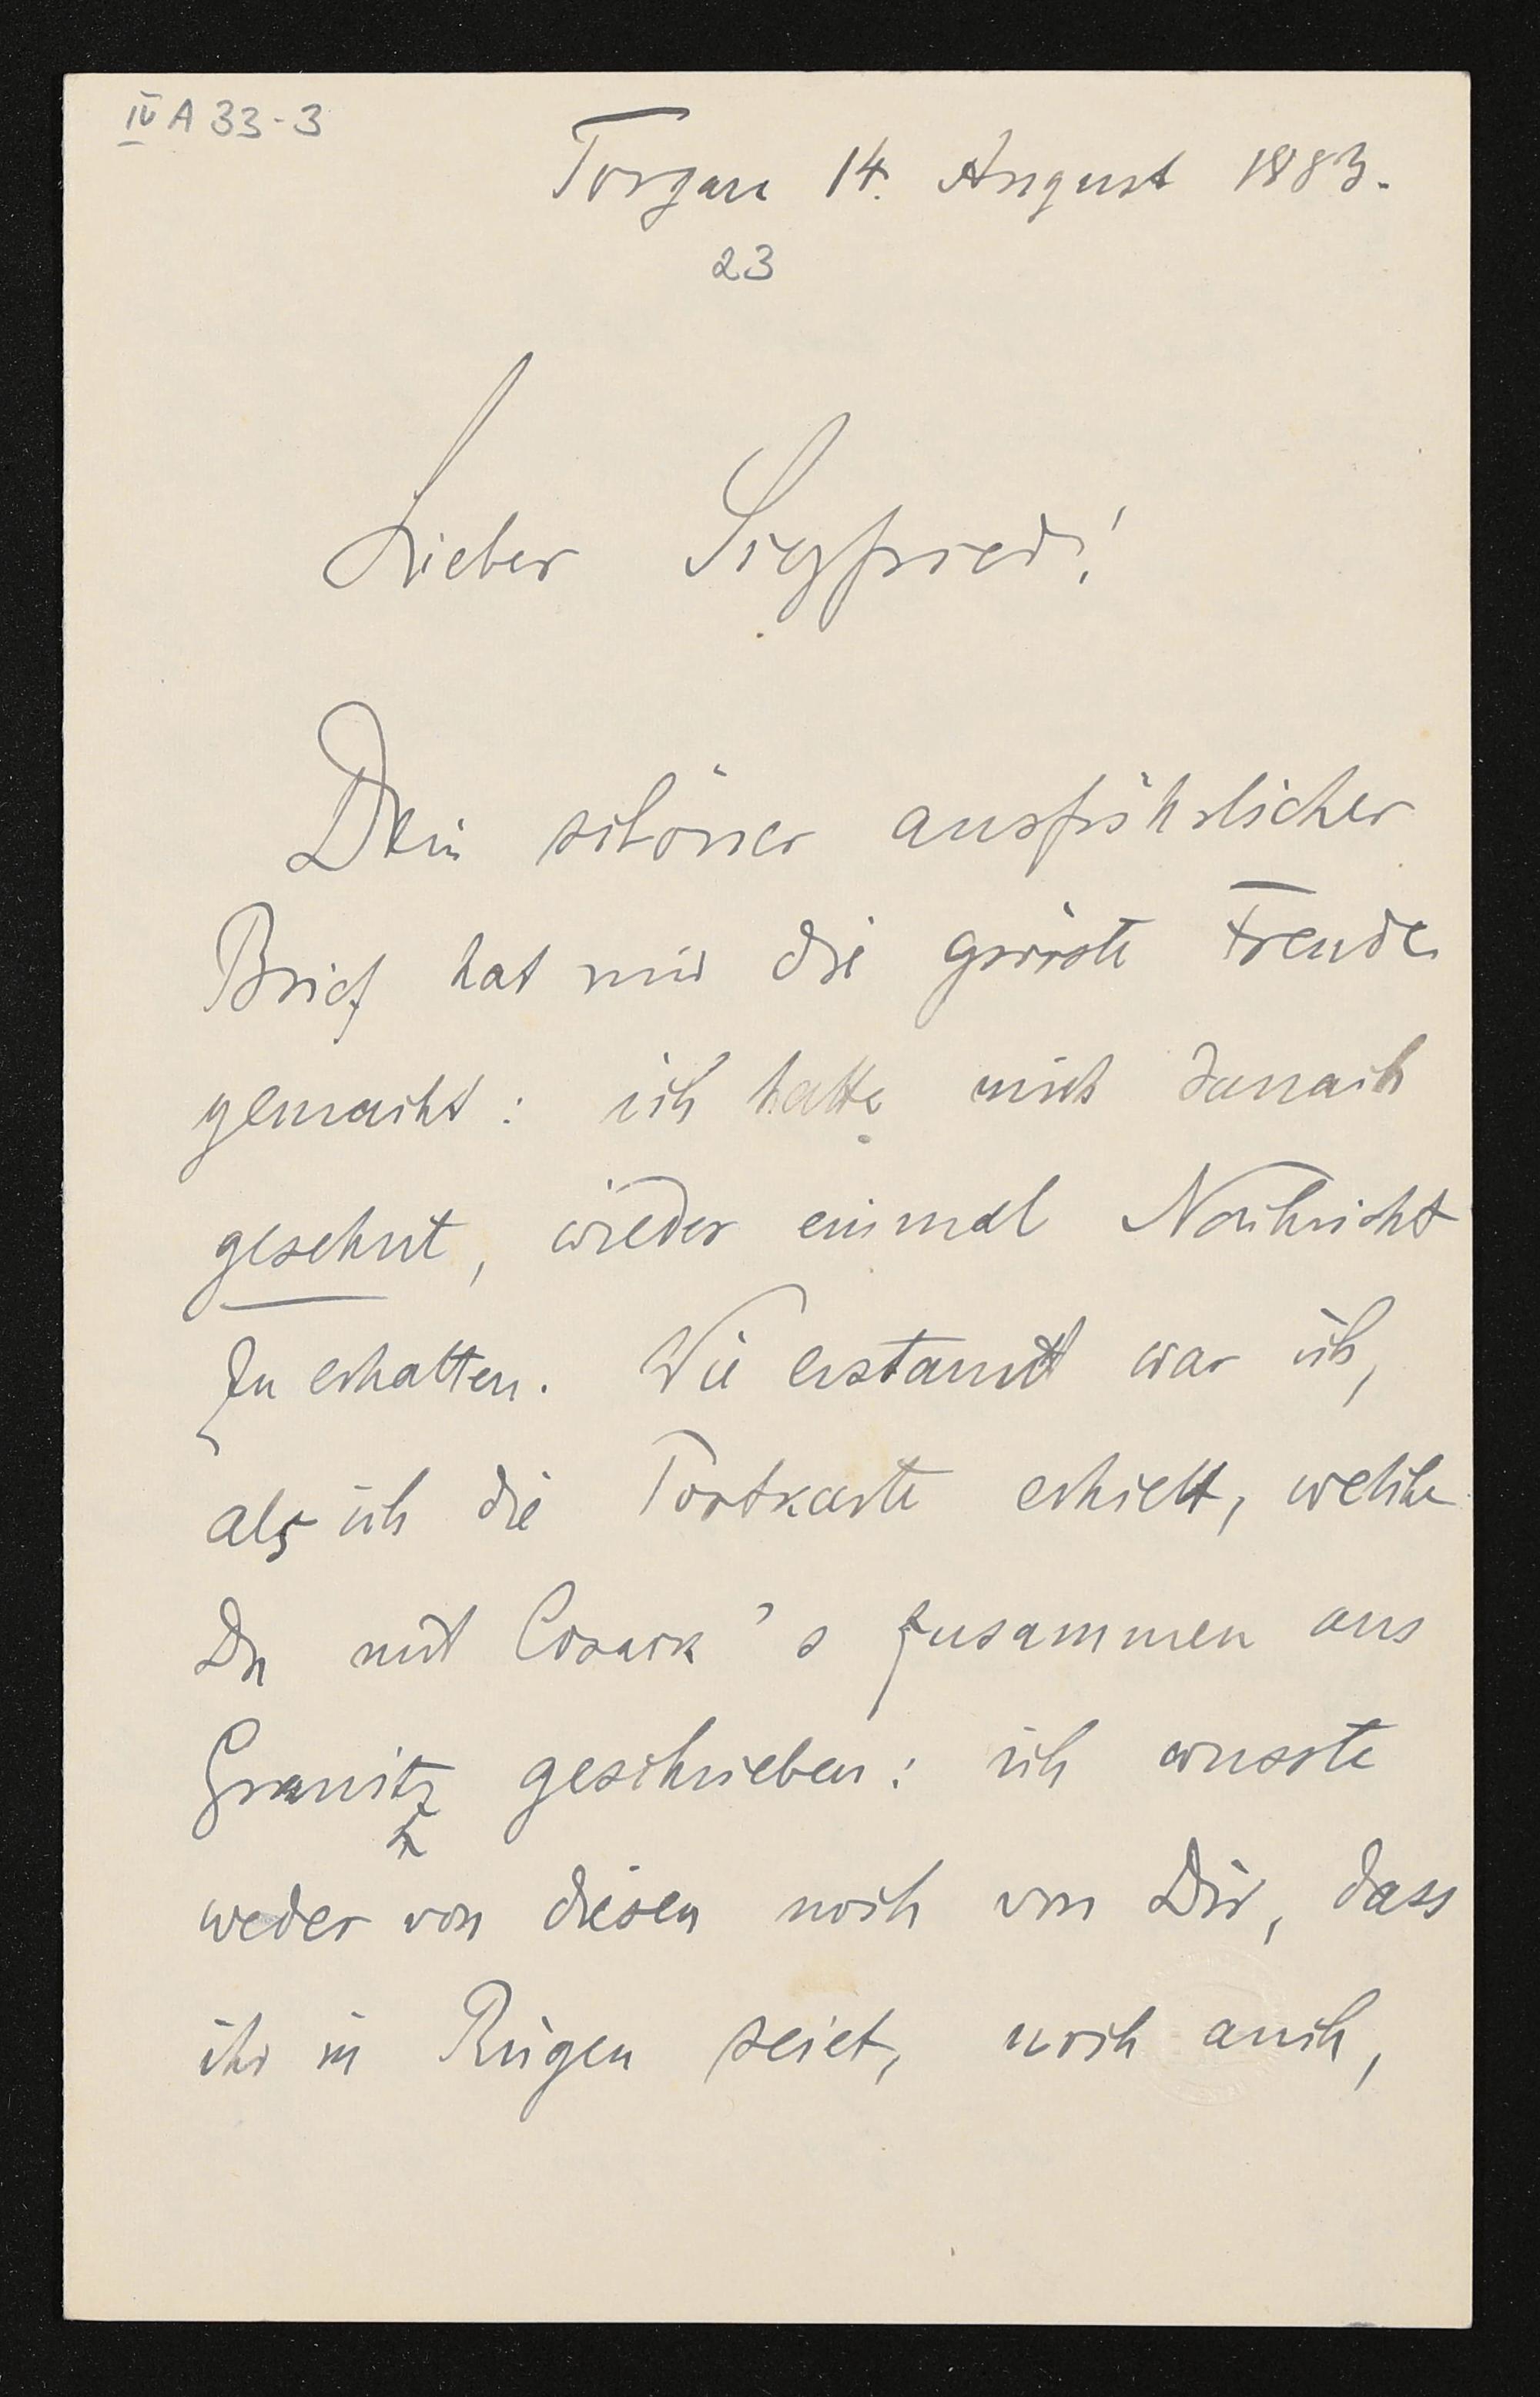 IV A 33-3
Torgau 14. August 1883.
23
Lieber Siegfried!
Dein schöner ausführlicher
Brief hat mir die grösste Freude
gemacht: ich hatte mich danach
gesehnt, wieder einmal Nachricht
zu erhalten. Wie erstaunt war ich,
als ich die Postkarte erhielt, welche
Du mit Cosack's zusammen aus
Granitz geschrieben: ich wusste
weder von diesen noch von Dir, dass
ihr in Rügen seiet, noch auch,